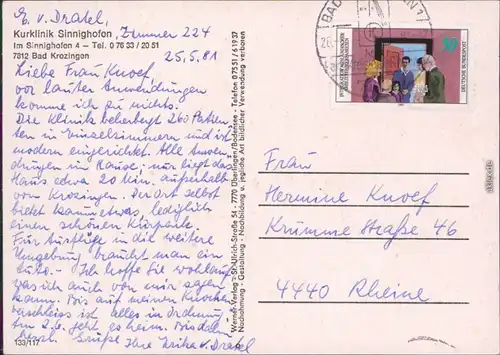 E. v. Dratel,
Kurklinik Sinnighofen, Zimmer 224
Im Sinnighofen 4 – Tel. 0 76 33 / 20 51
7812 Bad Krozingen
25.5.81
Liebe Frau Knoef,
vor lauter Anwendungen
komme ich zu nichts.
Die Klinik beherbergt 260 Patien-
ten in Einzelzimmern und ist
modern eingerichtet. Alle Anwen-
dungen im Hause; nur liegt das
Haus etwa 20 Min. außerhalb
von Krozingen. Der Ort selbst
bietet kaum etwas, lediglich
einen schönen Kurpark.
Für Ausflüge in die weitere
Umgebung braucht man ein
Auto. – Ich hoffe Sie wohlauf,
was ich auch von mir sagen
kann. Bis auf meinen Knochen-
verschleiss ist alles in Ordnung
Am 2.6. geht es heim. Bis dahin
herzl. Grüße Ihre v. Dratel
133/117
Werner-Verlag - St.-Ulrich-Straße 54 - 7770 Überlingen/Bodensee - Telefon 0 75 51 / 6 19 37
Nachahmung - Gestaltung - Nachbildung u. jegliche Art bildlicher Verwendung verboten
BAD
DEUTSCHE BUNDESPOST
Frau
Hermine Knoef
Krumme Straße 46
4440 Rheine